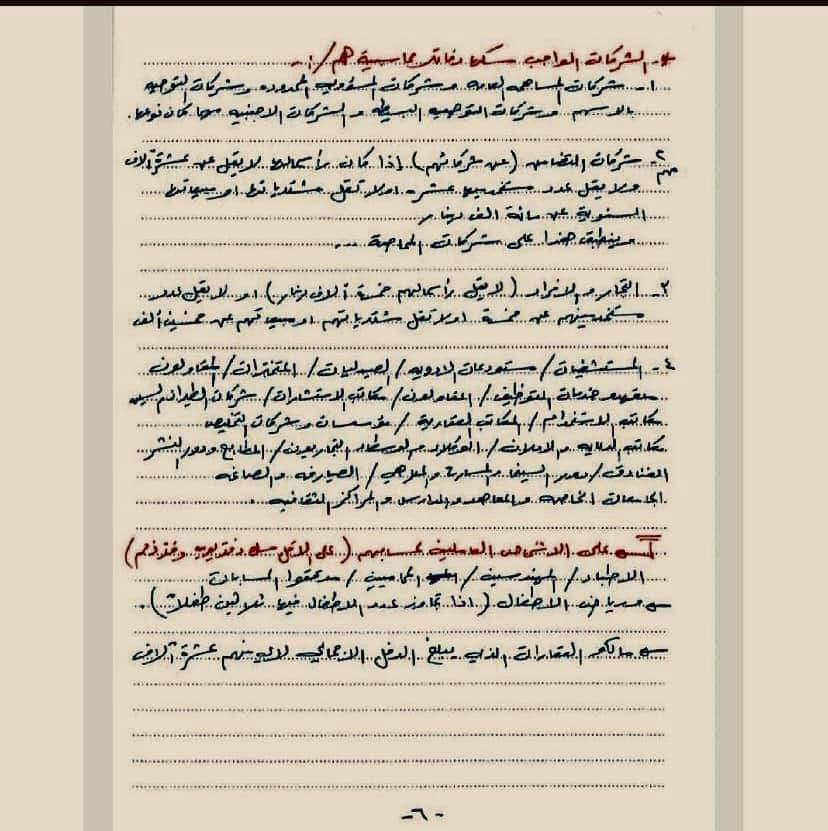 * - الشركات الواجب مسكها دفاتر محاسبية هم / :-
١- شركات المساهمه العامه وشركات المسؤوليه المحدوده وشركات التوصيه
بالاسهم وشركات التوصيه البسيطه والشركات الاجنبيه مهما كان نوعها.
٢- شركات التضامن (عن شركائهم) إذا كان رأسمالها لا يقل عن عشرة آلاف
مهم
ولا يقل عدد مستخدميها عشره اولا تقل مشترياتها او مبيعاتها
السنوية عن مائة الف دينار
وينطبق هذا على شركات المحاصة ...
٣- التجار والافراد (لا يقل رأسمالهم خمسة آلاف دينار) او لا يقل عدد
مستخدمينهم عن خمسة اولا تقل مشترياتهم او مبيعاتهم عن خمسين ألف
٤- المستشفيات / مستودعات الادويه / الصيدليات / المختبرات / المقاولون
خدمات التوظيف / المقاولون / مكاتب الاستشارات / شركات الطيران
مكاتب الاستخدام / المكاتب العقارية / مؤسسات وشركات التخليص
مكاتب الدعايه والاعلان / الوكلاء والوسطاء التجاريون / المطابع ودور النشر
الفنادق / دور السينما والمسارح والملاهي / الصيارفه والصاغه
الجامعات الخاصه والمعاهد والمدارس والمراكز الثقافيه .
على الاشخاص العاملين بحسابهم (على الاقل مسك دفتر يوميه ودفتر ذمم)
الاطباء / المهندسين / المحاميين / مدققوا الحسابات
ــ ورياض الاطفال (اذا تجاوز عدد الاطفال فيها ثلاثين طفلاً) .
ــ مالكو العقارات الذي يبلغ الدخل الاجمالي لاي منهم عشرة آلاف
-٦-